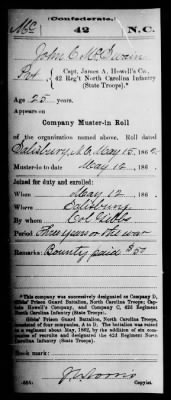 (Confederate.)
Mc 42 N.C.
John C. McSwain
Pvt, Capt. James A. Howell's Co.,
42 Reg't North Carolina Infantry
(State Troops).*
Age 25 years.
Appears on
Company Muster-in Roll
of the organization named above. Roll dated
Salisbury, N.C. May 15, 1862.
Muster-in to date May 12, 186 .
Joined for duty and enrolled:
When May 12, 186 .
Where Salisbury
By whom Col Gibbs
Period Three years or the war
Remarks: Bounty paid $50
*This company was successively designated as Company D,
Gibbs' Prison Guard Battalion, North Carolina Troops; Captain
Howell's Company, and Company C, 42d Regiment
North Carolina Infantry (State Troops).
Gibbs' Prison Guard Battalion, North Carolina Troops,
consisted of four companies, A to D. The battalion was raised
to a regiment about May, 1862, by the addition of six companies
of recruits and designated the 42d Regiment North
Carolina Infantry (State Troops).
Book mark:
Copyist.